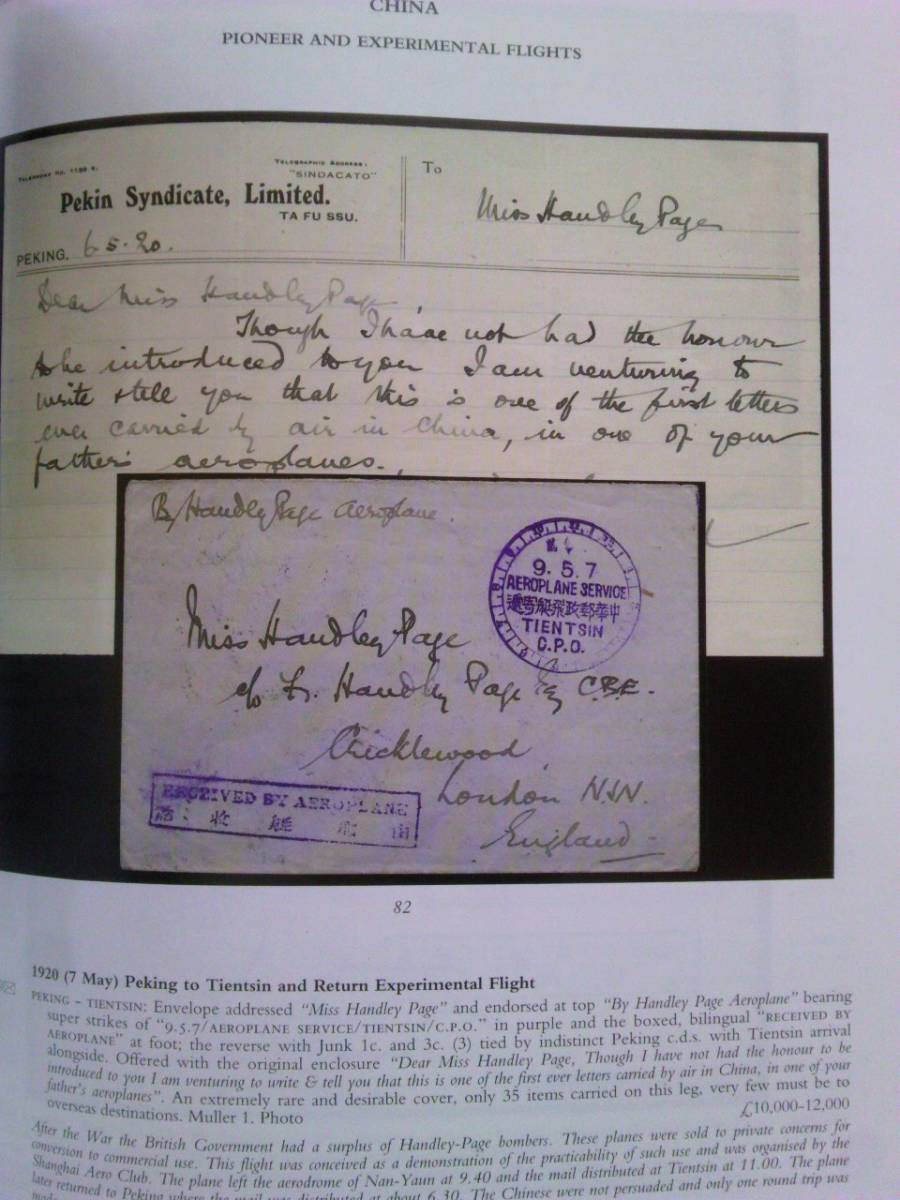 CHINA
PIONEER AND EXPERIMENTAL FLIGHTS
TELEPHONE NO. 1150 E.
TELEGRAPHIC ADDRESS.
"SINDACATO"
Pekin Syndicate, Limited.
TA FU SSU.
PEKING, 6.5.20.
To
Miss Handley Page
Dear Miss Handley Page
Though I have not had the honour
to be introduced to you I am venturing to
write & tell you that this is one of the first letters
ever carried by air in China, in one of your
father's aeroplanes.
By Handley Page Aeroplane.
9.5.7
AEROPLANE SERVICE
中華郵政飛艇寄遞
TIENTSIN
C.P.O.
Miss Handley Page
c/o F. Handley Page Esq CBE.
Cricklewood
London N.W.
England
RECEIVED BY AEROPLANE
82
1920 (7 May) Peking to Tientsin and Return Experimental Flight
PEKING – TIENTSIN: Envelope addressed "Miss Handley Page" and endorsed at top "By Handley Page Aeroplane" bearing
super strikes of "9.5.7/AEROPLANE SERVICE/TIENTSIN/C.P.O." in purple and the boxed, bilingual "RECEIVED BY
AEROPLANE" at foot; the reverse with Junk 1c. and 3c. (3) tied by indistinct Peking c.d.s. with Tientsin arrival
alongside. Offered with the original enclosure "Dear Miss Handley Page, Though I have not had the honour to be
introduced to you I am venturing to write & tell you that this is one of the first ever letters carried by air in China, in one of your
father's aeroplanes". An extremely rare and desirable cover, only 35 items carried on this leg, very few must be to
overseas destinations. Muller 1. Photo
£10,000-12,000
After the War the British Government had a surplus of Handley-Page bombers. These planes were sold to private concerns for
conversion to commercial use. This flight was conceived as a demonstration of the practicability of such use and was organised by the
Shanghai Aero Club. The plane left the aerodrome of Nan-Yaun at 9.40 and the mail distributed at Tientsin at 11.00. The plane
later returned to Peking where the mail was distributed at about 6.30. The Chinese were not persuaded and only one round trip was